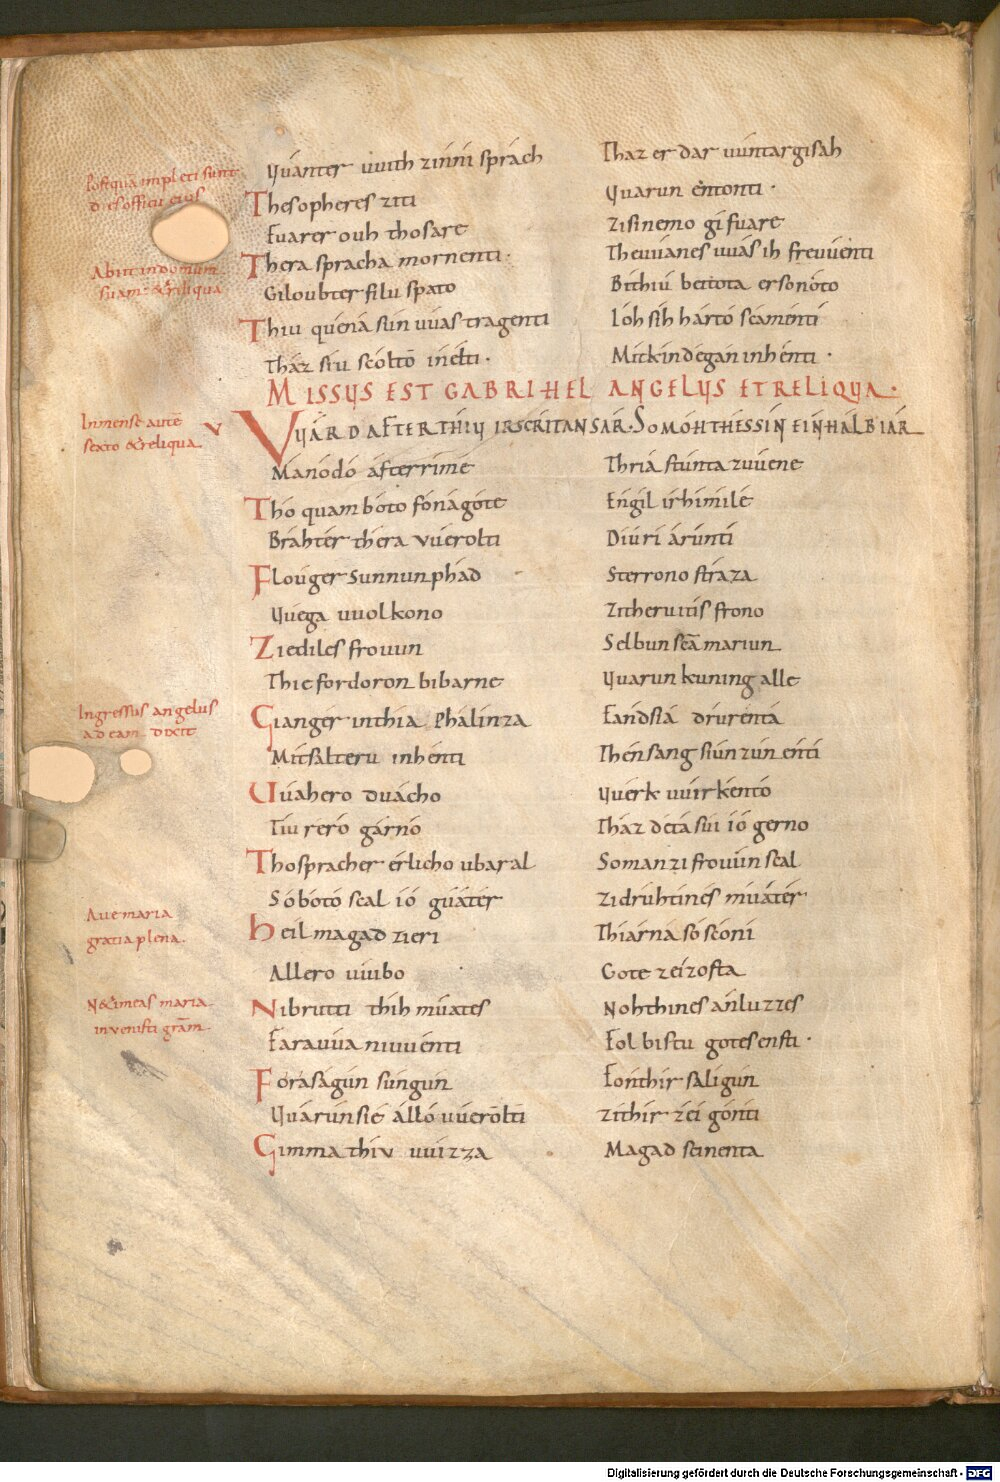 Postquā impleti sunt
dies officii eius
Abiit in domum
suam & reliqua
Yuánter uuith zinni sprách Thaz er dar uuntar gisah
Thes opheres ziti Yuarun éntonti ·
Fuarer ouh thosare zi sinemo gifuare
Thera spracha mornenti · Theuuánes uuás ih freuuenti
Giloubter filu spato Bithiú beitota er sonóto
Thiu quená sún uuas tragenti Ióh sih hárto scámenti
Tház siu scólto in élti · Mit kinde gán inhénti ·
MISSUS EST GABRIHEL ANGELUS ET RELIQUA ·
In mense autē
sexto & reliqua
V
VUÁRD AFTER THIU IRSCRITAN SÁR · SO MÓHT ES SIN EIN HALB IÁR
Mánodo áfter ríme Thriá stúnta zuuene
Tho quam bóto fona góte Engil ir himile
Bráhter thera vuérolti Diúri árúnti
Floúger sunnun phád Sterrono stráza
Yuega uuolkono Zi theru itis frono
Zi ediles frouun Selbun scā mariun
Thie fordoron bi barne Yuarun kuning alle
Ingressus angelus
ad eam dixit
Gianger in thia phálinza Fand sia drúrenta
Mit salteru in henti Then sang si unz in enti
Uuáhero duácho Yuerk uuirkento
Tiurero gárno Tház déta siu ió gerno
Tho sprach er érlicho ubar al So man zi frouuún scal
Só bóto scal ió guáter Zi drúhtines muáter
Aue maria
gratia plena.
Heil magad zieri Thiárna so scóni
Allero uuibo Gote zeizosta
Ne timeas maria
inuenisti grām.
Ni brutti thih múates Noh thines ánluzzes
Farauua ni uuenti Fol bistu gotes ensti ·
Forasagun sungun Fon thir saligun
Yuárun sie álló uuérolti Zi thir zéigónti
Gimma thiu uuizza Magad scinenta
Digitalisierung gefördert durch die Deutsche Forschungsgemeinschaft - DFG